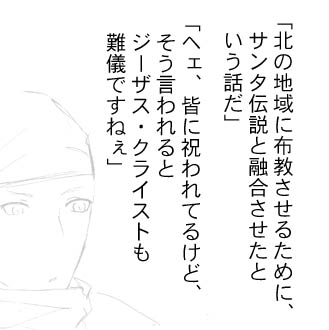 「北の地域に布教させるために、
サンタ伝説と融合させたと
いう話だ」
「ヘェ、皆に祝われてるけど、
そう言われると
ジーザス・クライストも
難儀ですねぇ」